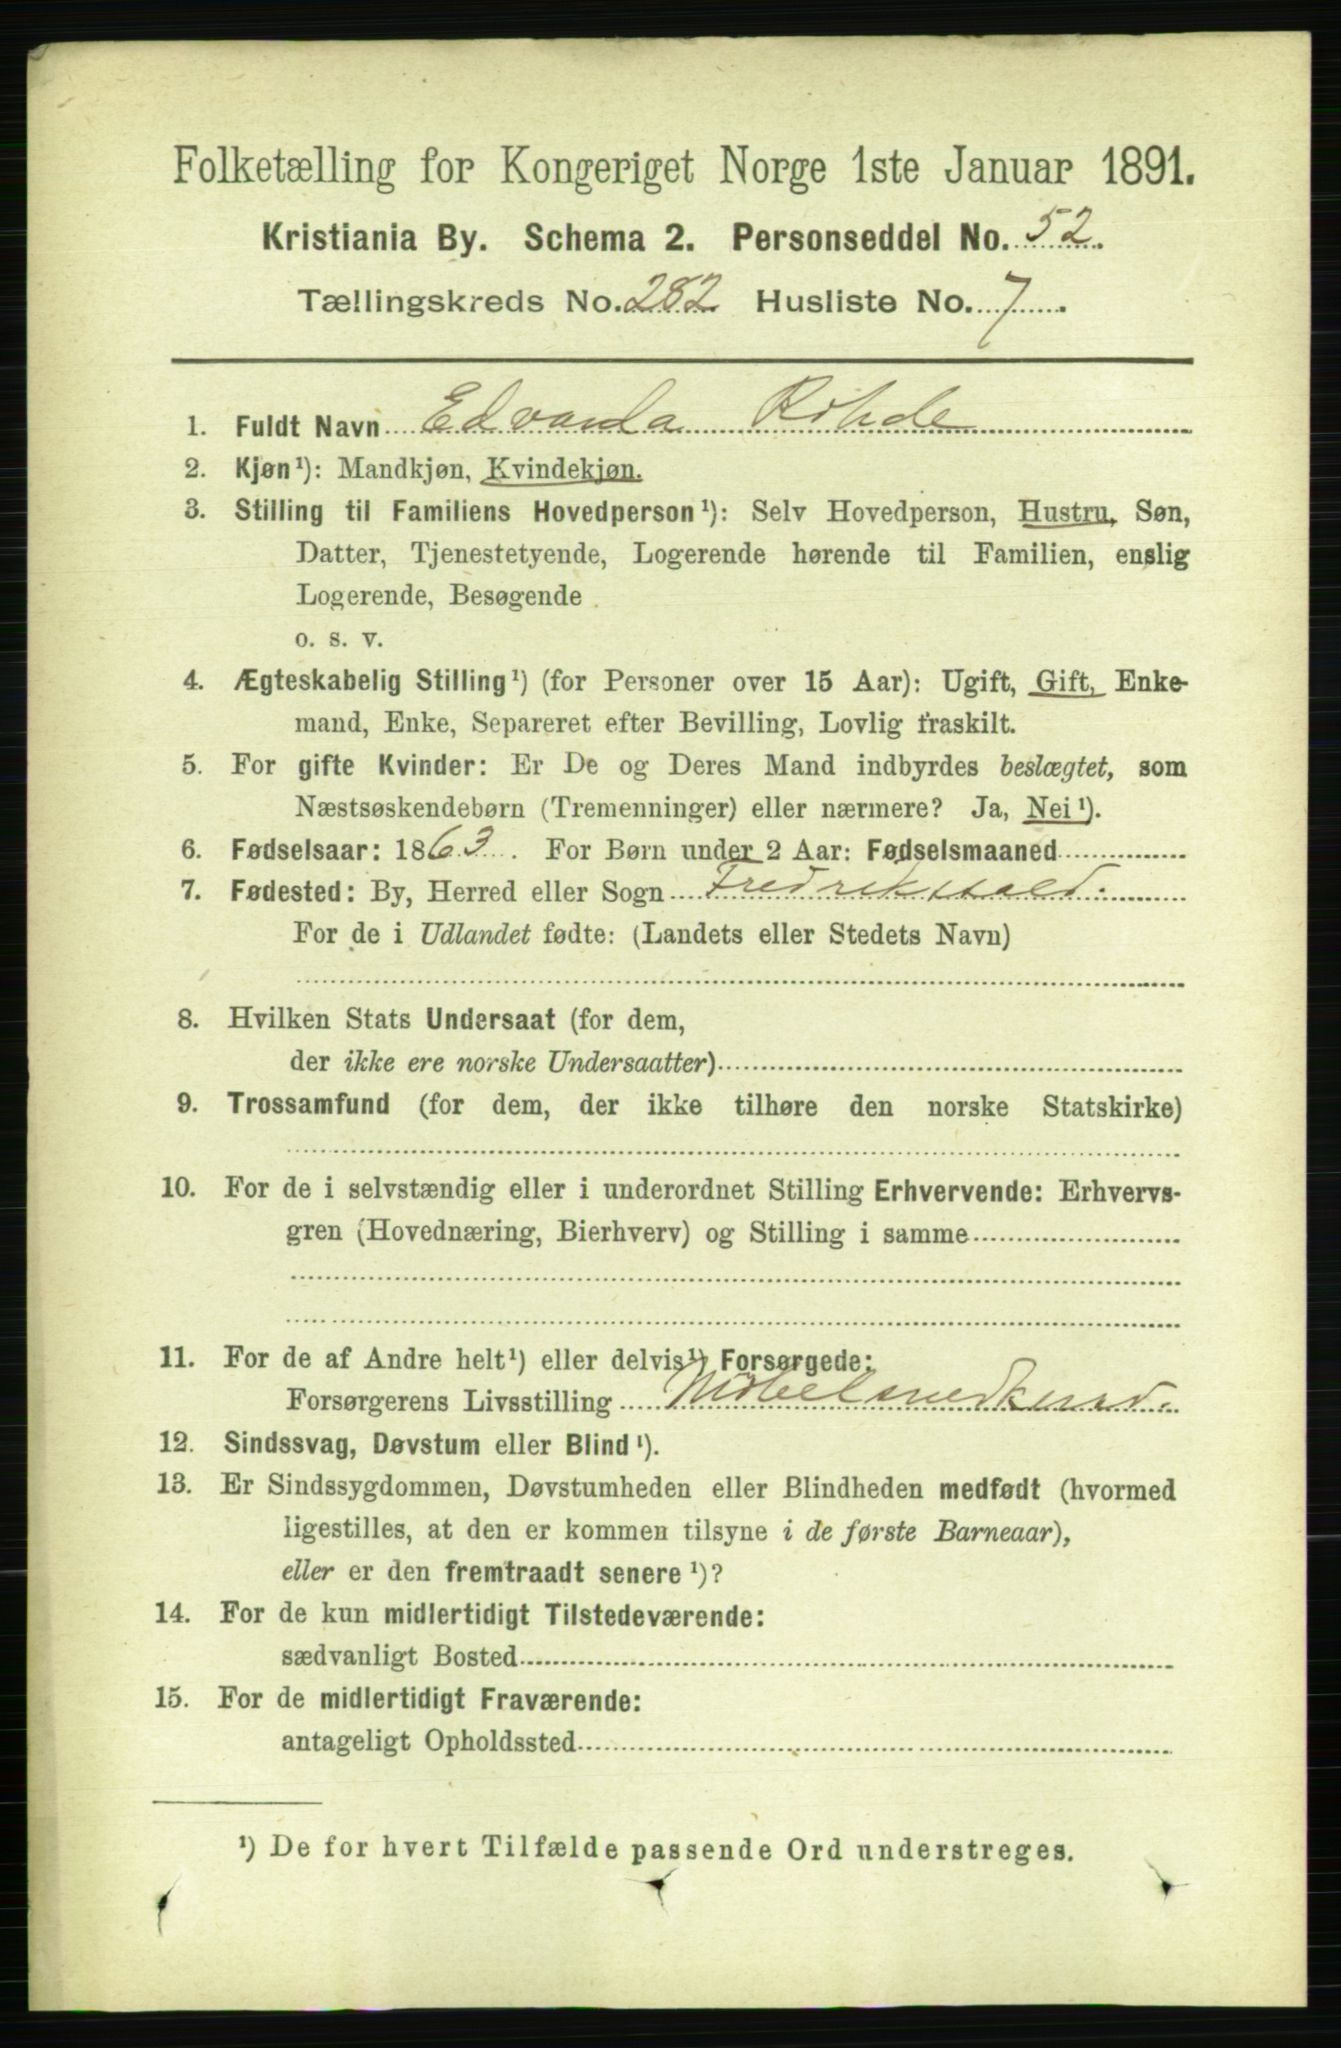 Folketælling for Kongeriget Norge 1ste Januar 1891.
Kristiania By. Schema 2. Personseddel No. 52.
Tællingskreds No. 282 Husliste No. 7.
1. Fuldt Navn Edvarda Rohde
2. Kjøn¹): Mandkjøn, Kvindekjøn.
3. Stilling til Familiens Hovedperson¹): Selv Hovedperson, Hustru, Søn,
Datter, Tjenestetyende, Logerende hørende til Familien, enslig
Logerende, Besøgende
o. s. v.
4. Ægteskabelig Stilling¹) (for Personer over 15 Aar): Ugift, Gift, Enke-
mand, Enke, Separeret efter Bevilling, Lovlig fraskilt.
5. For gifte Kvinder: Er De og Deres Mand indbyrdes beslægtet, som
Næstsøskendebørn (Tremenninger) eller nærmere? Ja, Nei¹).
6. Fødselsaar: 1863. For Børn under 2 Aar: Fødselsmaaned
7. Fødested: By, Herred eller Sogn Fredrikshald.
For de i Udlandet fødte: (Landets eller Stedets Navn)
8. Hvilken Stats Undersaat (for dem,
der ikke ere norske Undersaatter)
9. Trossamfund (for dem, der ikke tilhøre den norske Statskirke)
10. For de i selvstændig eller i underordnet Stilling Erhvervende: Erhvervs-
gren (Hovednæring, Bierhverv) og Stilling i samme
11. For de af Andre helt¹) eller delvis¹) Forsørgede:
Forsørgerens Livsstilling Møbelsnedkersv.
12. Sindssvag, Døvstum eller Blind¹).
13. Er Sindssygdommen, Døvstumheden eller Blindheden medfødt (hvormed
ligestilles, at den er kommen tilsyne i de første Barneaar),
eller er den fremtraadt senere¹)?
14. For de kun midlertidigt Tilstedeværende:
sædvanligt Bosted
15. For de midlertidigt Fraværende:
antageligt Opholdssted
¹) De for hvert Tilfælde passende Ord understreges.